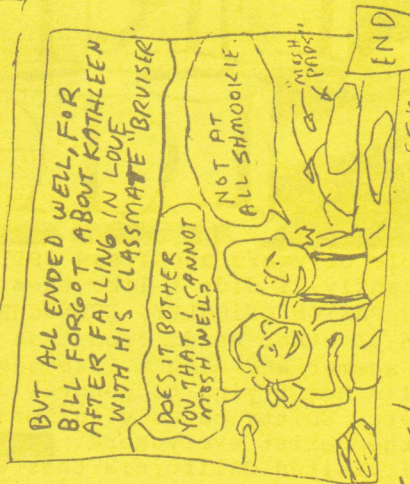 BUT ALL ENDED WELL, FOR
BILL FORGOT ABOUT KATHLEEN
AFTER FALLING IN LOVE
WITH HIS CLASSMATE "BRUISER."
DOES IT BOTHER
YOU THAT I CANNOT
MOSH WELL?
NOT AT
ALL SHMOOKIE.
"MOSH
PADS"
END